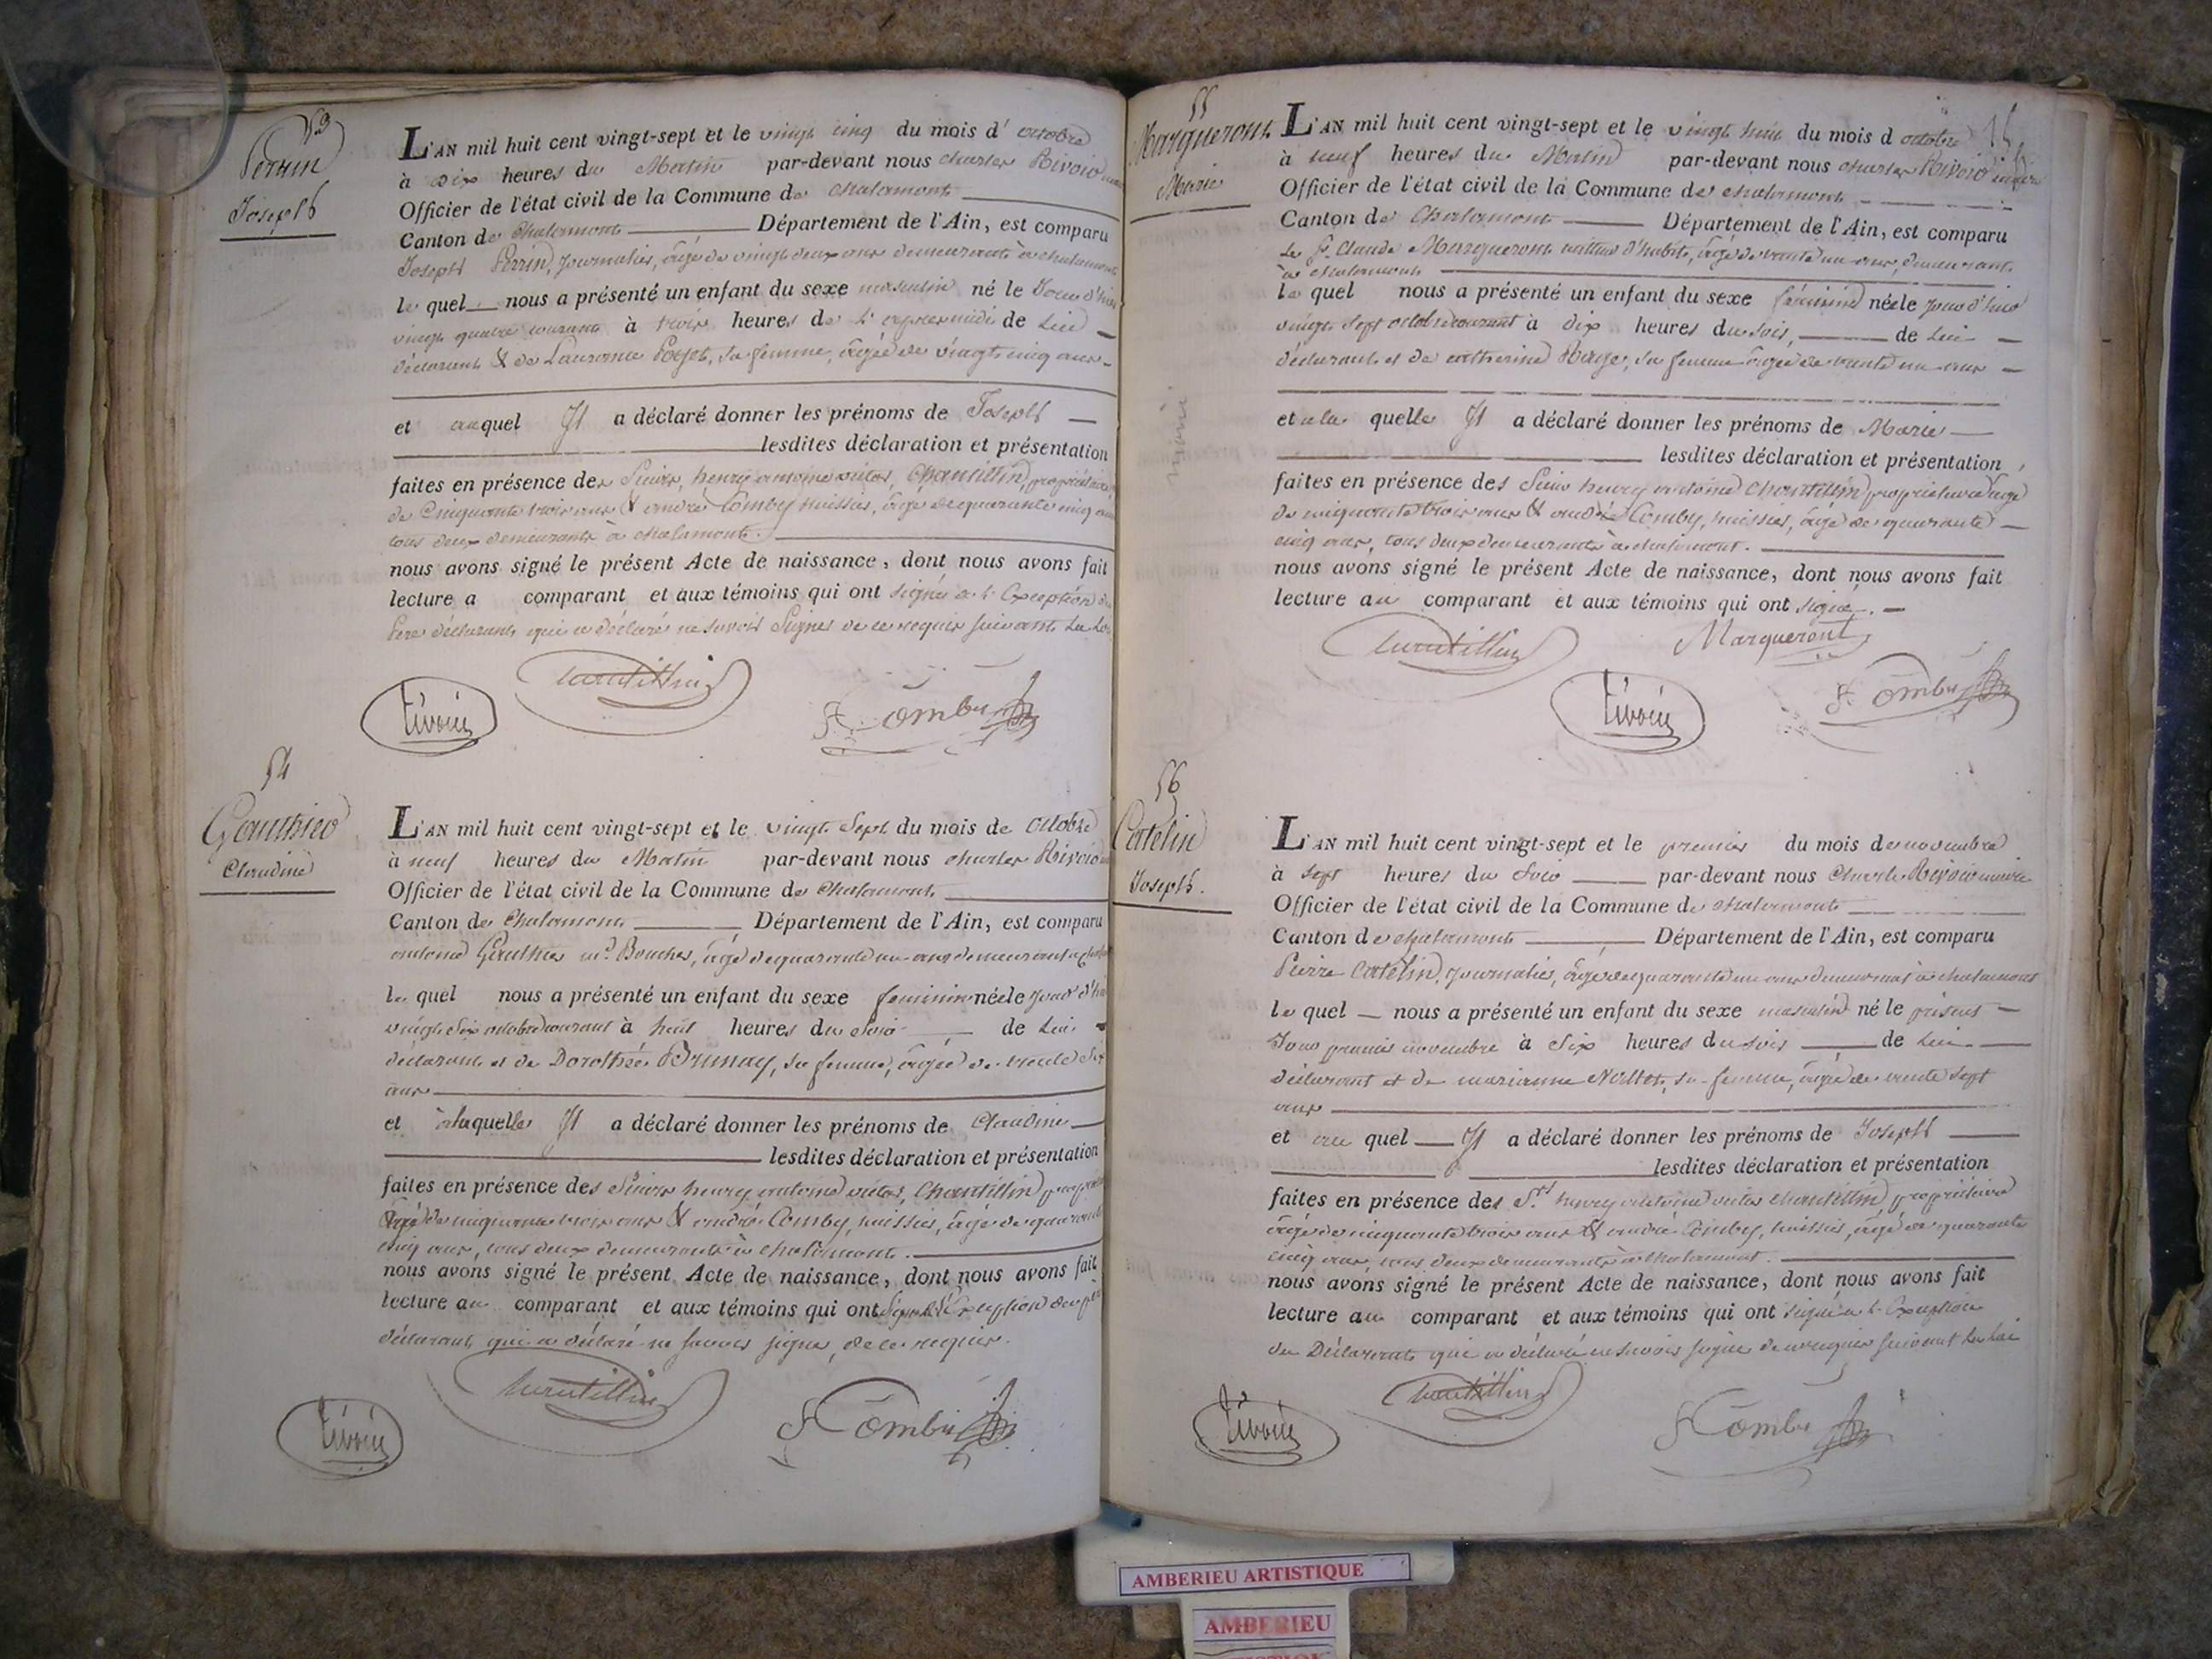 53
Perrin
Joseph
L'AN mil huit cent vingt-sept et le vingt cinq du mois d'octobre
à dix heures du Matin par-devant nous charles Rivoir
Officier de l'état civil de la Commune de chalamont
Canton de Chalamont Département de l'Ain, est comparu
Joseph Perrin, journalier, âgé de vingt deux ans demeurant à chalamont
le quel nous a présenté un enfant du sexe masculin né le Jour d'hier
vingt quatre courant à trois heures de l'après midi de Lui
déclarant & de Laurance, sa femme, âgée de vingt cinq ans
et au quel Il a déclaré donner les prénoms de Joseph
lesdites déclaration et présentation
faites en présence des Sieurs, henry antoine victor, Chantillin, propriétaire
de Cinquante trois ans & andré Comby huissier, âgé de quarante cinq ans
tous deux demeurants à chalamont.
nous avons signé le présent Acte de naissance, dont nous avons fait
lecture a comparant et aux témoins qui ont signés à l'Exception du
Père déclarant qui a déclaré ne savoir Signer de ce requis suivant La Loi
Rivoir
Chantillin
Comby
54
Gauthier
Claudine
L'AN mil huit cent vingt-sept et le vingt Sept du mois de Octobre
à neuf heures du Matin par-devant nous charles Rivoir
Officier de l'état civil de la Commune de Chalamont
Canton de Chalamont Département de l'Ain, est comparu
antoine Gauthier md. Boucher, âgé de quarante un ans demeurant à
le quel nous a présenté un enfant du sexe feminin née le Jour d'hier
vingt Six octobre courant à huit heures du Soir de Lui
déclarant et de Dorothée Brunay, sa femme, âgée de trente Six
ans
et à laquelle Il a déclaré donner les prénoms de Claudine
lesdites déclaration et présentation
faites en présence des Sieurs henry antoine victor, Chantillin
âgé de cinquante trois ans & andré Comby, huissier, âgé de quarante
cinq ans, tous deux demeurants à Chalamont.
nous avons signé le présent Acte de naissance, dont nous avons fait
lecture au comparant et aux témoins qui ont signé à l'Exception du père
déclarant, qui a déclaré ne savoir signer, de ce requis.
Rivoir
Chantillin
Comby
55
Marqueront
Marie
L'AN mil huit cent vingt-sept et le vingt huit du mois d octobre
à neuf heures du Matin par-devant nous charles Rivoir maire
Officier de l'état civil de la Commune de chalamont
Canton de Chalamont Département de l'Ain, est comparu
Le Sr. Claude Marqueront tailleur d'habits, âgé de trente un ans, demeurant
à chalamont
le quel nous a présenté un enfant du sexe féminin née le jour d'hier
vingt sept octobre courant à dix heures du soir, de Lui
déclarant et de catherine, sa femme âgée de trente un ans
et a la quelle Il a déclaré donner les prénoms de Marie
lesdites déclaration et présentation
faites en présence des Sieurs henry antoine Chantillin propriétaire âgé
de cinquante trois ans & andré Comby, huissier, âgé de quarante
cinq ans, tous deux demeurants à chalamont.
nous avons signé le présent Acte de naissance, dont nous avons fait
lecture au comparant et aux témoins qui ont signé.
Chantillin
Marqueront
Rivoir
Comby
56
Catelin
Joseph.
L'AN mil huit cent vingt-sept et le premier du mois de novembre
à sept heures du Soir par-devant nous Charles Rivoir maire
Officier de l'état civil de la Commune de chalamont
Canton de chalamont Département de l'Ain, est comparu
Pierre Catelin, journalier, âgé de quarante un ans demeurant à chalamont
le quel nous a présenté un enfant du sexe masculin né le présent
Jour premier novembre à Six heures du soir de Lui
déclarant et de marianne, sa femme, âgée de trente sept
ans
et au quel Il a déclaré donner les prénoms de Joseph
lesdites déclaration et présentation
faites en présence des Srs henry antoine victor Chantillin, propriétaire
âgé de cinquante trois ans & andré Comby, huissier, âgé de quarante
cinq ans, tous deux demeurants à chalamont.
nous avons signé le présent Acte de naissance, dont nous avons fait
lecture au comparant et aux témoins qui ont signé à l'Exception
du Déclarant qui a déclaré ne savoir signer de ce requis suivant La Loi
Rivoir
Chantillin
Comby
AMBERIEU ARTISTIQUE
AMBERIEU